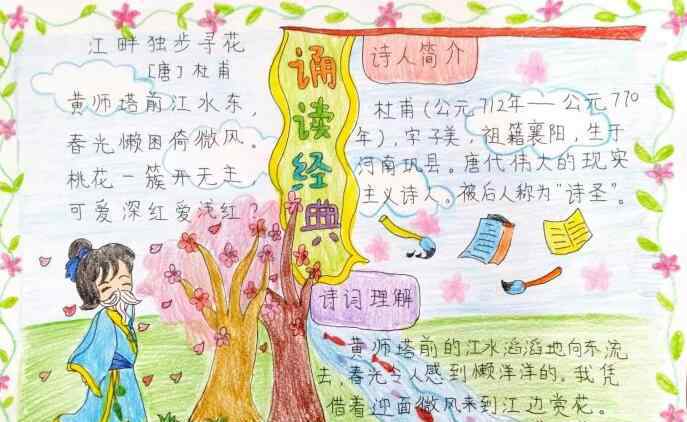 江畔独步寻花
[唐] 杜甫
黄师塔前江水东，
春光懒困倚微风。
桃花一簇开无主
可爱深红爱浅红？
诵读经典
诗人简介
杜甫（公元712年——公元770
年），字子美，祖籍襄阳，生于
河南巩县。唐代伟大的现实
主义诗人。被后人称为“诗圣”。
诗词理解
黄师塔前的江水滔滔地向东流
去，春光令人感到懒洋洋的。我凭
借着迎面微风来到江边赏花。